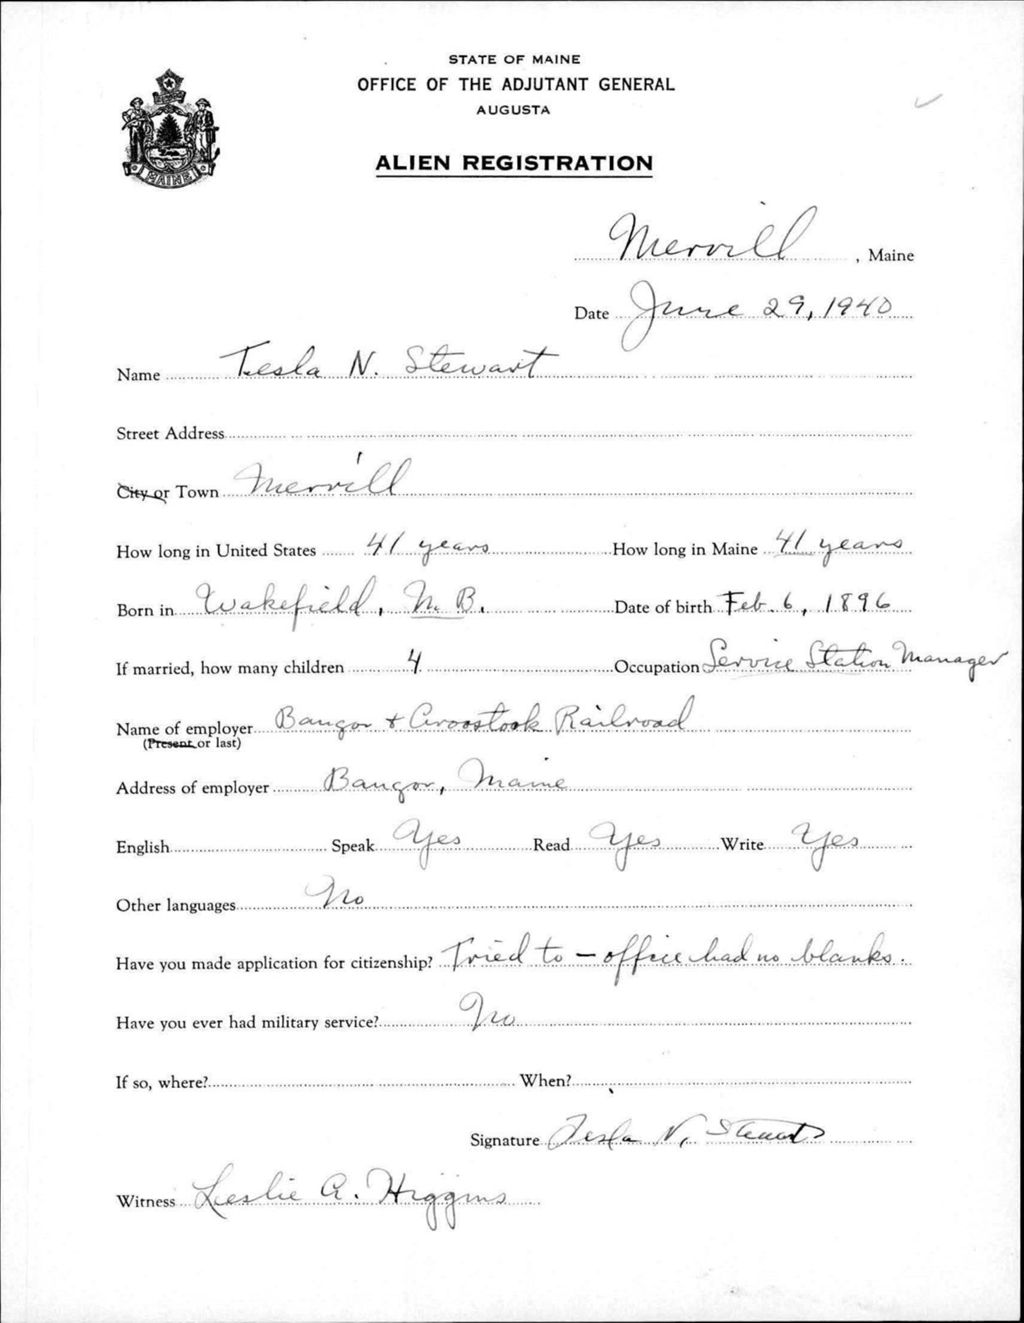 STATE OF MAINE
OFFICE OF THE ADJUTANT GENERAL
AUGUSTA
MAINE
ALIEN REGISTRATION
Merrill, Maine
Date June 29, 1940
Name Tesla N. Stewart
Street Address
City or Town Merrill
How long in United States 41 years How long in Maine 41 years
Born in Wakefield, N. B. Date of birth Feb. 6, 1896
If married, how many children 4 Occupation Service Station Manager
Name of employer Bangor & Aroostook Railroad
(Present or last)
Address of employer Bangor, Maine
English Speak Yes Read Yes Write Yes
Other languages No
Have you made application for citizenship? Tried to — office had no blanks.
Have you ever had military service? No
If so, where? When?
Signature Tesla N. Stewart
Witness Leslie A. Higgins